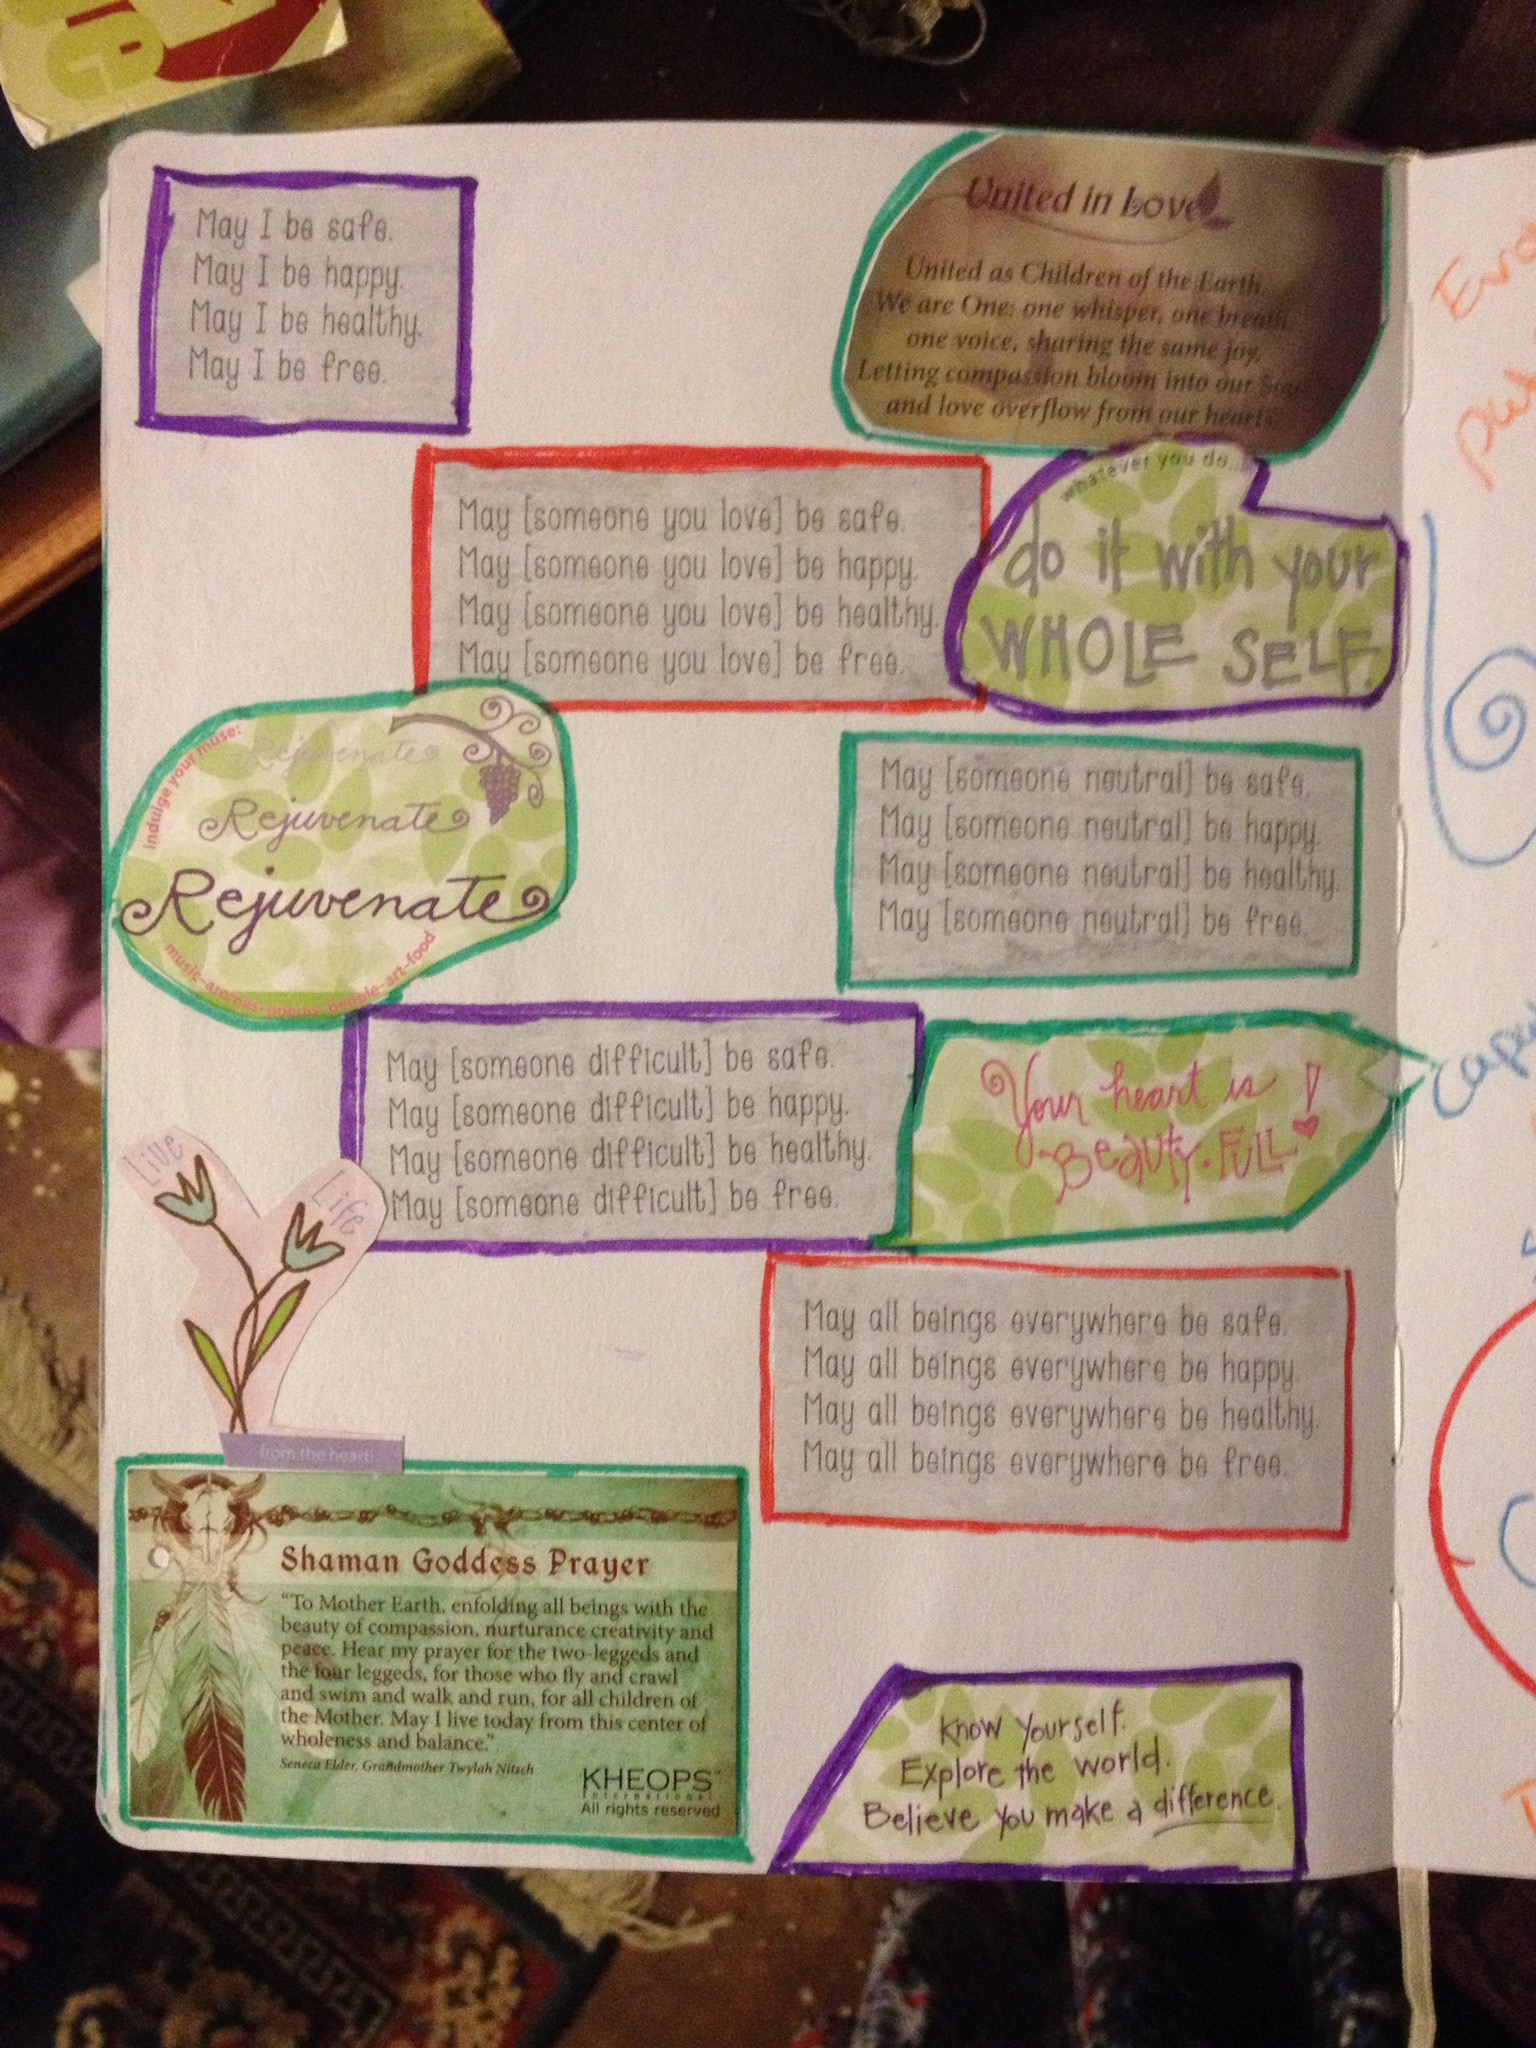 May I be safe.
May I be happy.
May I be healthy.
May I be free.
United in Love
United as Children of the Earth,
We are One: one whisper, one breath
one voice, sharing the same joy.
Letting compassion bloom into our
and love overflow from our hearts
May [someone you love] be safe.
May [someone you love] be happy.
May [someone you love] be healthy.
May [someone you love] be free.
whatever you do...
do it with your
WHOLE SELF.
indulge your muse:
Rejuvenate
Rejuvenate
Rejuvenate
music-aromas-poems-people-art-food
May [someone neutral] be safe.
May [someone neutral] be happy.
May [someone neutral] be healthy.
May [someone neutral] be free.
May [someone difficult] be safe.
May [someone difficult] be happy.
May [someone difficult] be healthy.
May [someone difficult] be free.
Your heart is
Beauty-FULL!
Live
Life
from the heart!
May all beings everywhere be safe.
May all beings everywhere be happy.
May all beings everywhere be healthy.
May all beings everywhere be free.
Shaman Goddess Prayer
"To Mother Earth, enfolding all beings with the
beauty of compassion, nurturance creativity and
peace. Hear my prayer for the two-leggeds and
the four leggeds, for those who fly and crawl
and swim and walk and run, for all children of
the Mother. May I live today from this center of
wholeness and balance."
Seneca Elder, Grandmother Twylah Nitsch
KHEOPS™
International
All rights reserved
Know yourself.
Explore the world.
Believe you make a difference.